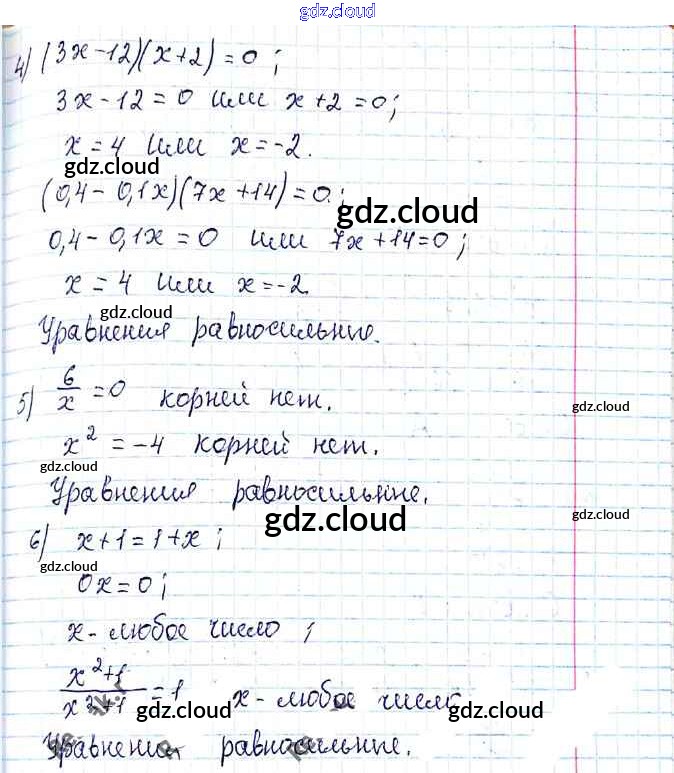 gdz.cloud
4) (3x-12)(x+2)=0;
3x-12=0 или x+2=0;
x=4 или x=-2.
gdz.cloud
(0,4-0,1x)(7x+14)=0;
gdz.cloud
0,4-0,1x=0 или 7x+14=0;
x=4 или x=-2.
gdz.cloud
Уравнения равносильные.
5) 6/x=0 корней нет.
gdz.cloud
x²=-4 корней нет.
gdz.cloud
Уравнения равносильные.
gdz.cloud
gdz.cloud
6) x+1=1+x;
gdz.cloud
0x=0;
x-любое число;
x²+1/x²+1=1 x-любое число
gdz.cloud gdz.cloud gdz.cloud
Уравнения равносильные.